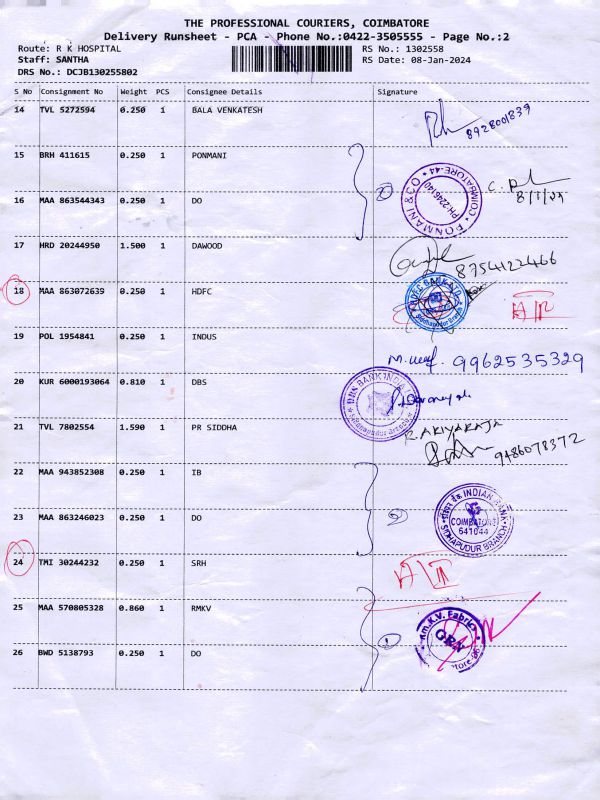 THE PROFESSIONAL COURIERS, COIMBATORE
Delivery Runsheet - PCA - Phone No.:0422-3505555 - Page No.:2
Route: R K HOSPITAL RS No.: 1302558
Staff: SANTHA RS Date: 08-Jan-2024
DRS No.: DCJB130255802
S No Consignment No Weight PCS Consignee Details Signature
14 TVL 5272594 0.250 1 BALA VENKATESH
8928001839
15 BRH 411615 0.250 1 PONMANI
PONMANI & CO COIMBATORE-44 PH-2246140
16 MAA 863544343 0.250 1 DO
17 HRD 20244950 1.500 1 DAWOOD
8754122466
18 MAA 863072639 0.250 1 HDFC
19 POL 1954841 0.250 1 INDUS
9962535329
20 KUR 6000193064 0.810 1 DBS
DBS BANK INDIA
21 TVL 7802554 1.590 1 PR SIDDHA
R. AKIYARAJA
9486078372
22 MAA 943852308 0.250 1 IB
INDIAN BANK
COIMBATORE
641044
SIDHAPUDUR BRANCH
23 MAA 863246023 0.250 1 DO
24 TMI 30244232 0.250 1 SRH
25 MAA 570805328 0.860 1 RMKV
26 BWD 5138793 0.250 1 DO